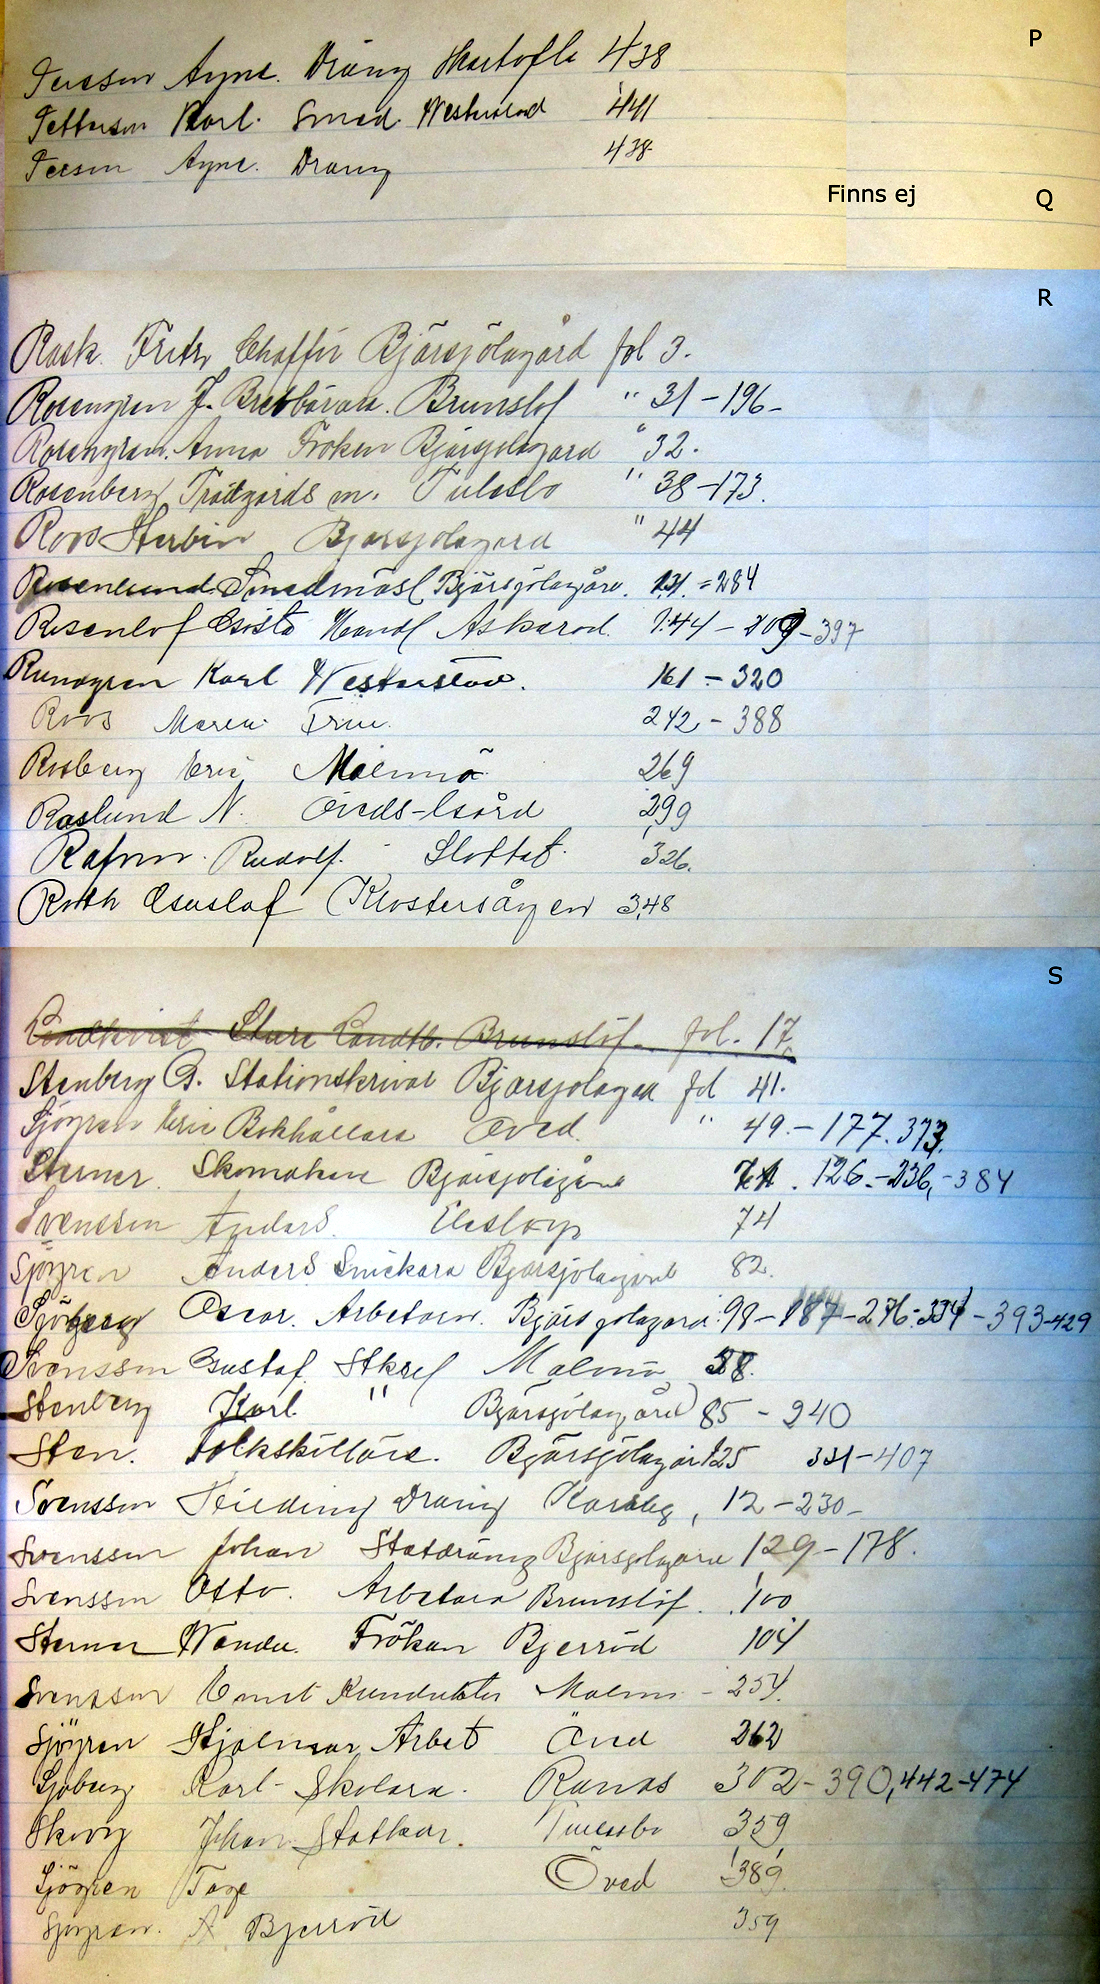 P
Persson Agne. Dräng Hartofta 438
Pettersson Karl. Smed. Westerstad 441
Persson Agne. Dräng 438
Finns ej Q
R
Rask. Fritz Chafför Björsjölagård fol 3.
Rosengren J. Brefbärare. Brunslöf " 31-196-
Rosengren. Anna Fröken Björsjölagård " 32.
Rosenberg Trädgårds m. Tulesbo " 38-173.
Roos Björsjölagård " 44
Rosenlund Smedmäst Björsjölagård. 131.=284
Rosenlöf Gösta Handl Askerod. 144-209-397
Rundgren Karl Westerstad. 161-320
Roos Maria Fru. 242-388
Rosberg Eric Malmö 269
Roslund N. Öveds- 299
Rudolf. Slottet. 326.
Roth Gustaf Klostersågen 348
S
Lindkvist Sture Landtb. Brunslöf. fol. 17.
Stenberg G. Stationskrivar Björsjölagård fol 41.
Sjögren Eric Bokhållare Öved. " 49.-177.373.
Sterner. Skomakare Björsjölagård . 126.-236,-384
Svensson Anders. Elestorp 74
Sjögren Anders Snickare Björsjölagård 82.
Sjöberg Oscar. Arbetare. Björsjölagård. 98-187-276-334-393-429
Svensson Gustaf. Malmö 88.
Stenberg Karl " Björsjölagård 85-240
Sten. Folkskillära. Björsjölagår 125 331-407
Svensson Hilding Dräng , 12-230-
Svensson Johan Statdräng Björsjölagård 129-178.
Svensson Otto. Arbetare Brunslöf. 100
Sterner Wanda. Fröken Bjerröd 104
Svensson Ernst Konduktör Malmö - 254.
Sjögren Hjalmar Arbet Öved 262
Sjöberg Karl- Skolara. Ranås 302-390,442-474
Skoog Johan Statkar. Tulesbo 359
Sjögren Tage Öved 389.
Sjögren. A Bjerröd 359